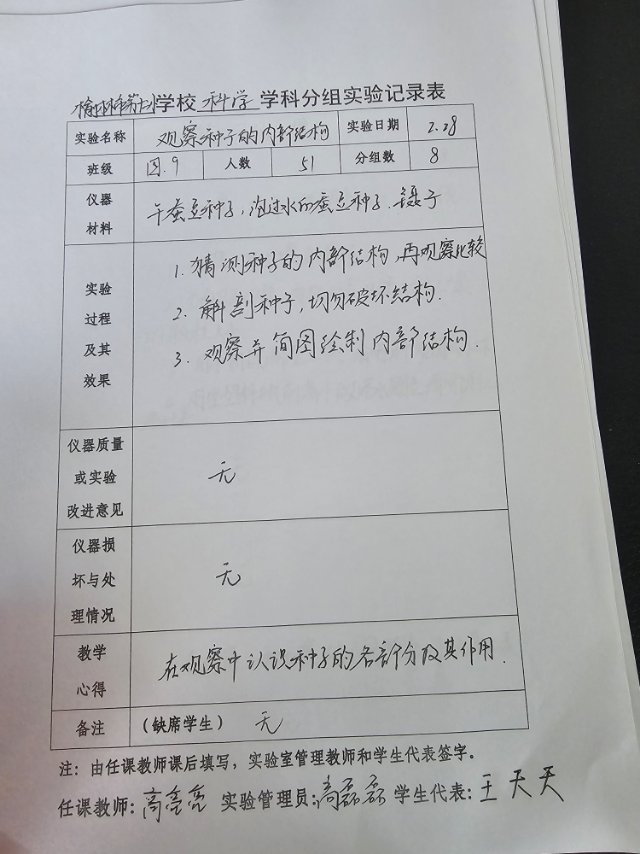 学校 科学 学科分组实验记录表
实验名称 观察种子的内部结构 实验日期 2.28
班级 四.9 人数 51 分组数 8
仪器材料 干蚕豆种子,泡过水的蚕豆种子.镊子
实验过程及其效果
1. 猜测种子的内部结构,再观察比较
2. 解剖种子,切勿破坏结构.
3. 观察并简图绘制内部结构.
仪器质量或实验改进意见 无
仪器损坏与处理情况 无
教学心得 在观察中认识种子的各部分及其作用.
备注 (缺席学生) 无
注:由任课教师课后填写,实验室管理教师和学生代表签字。
任课教师:高亮亮 实验管理员:高磊磊 学生代表:王天天